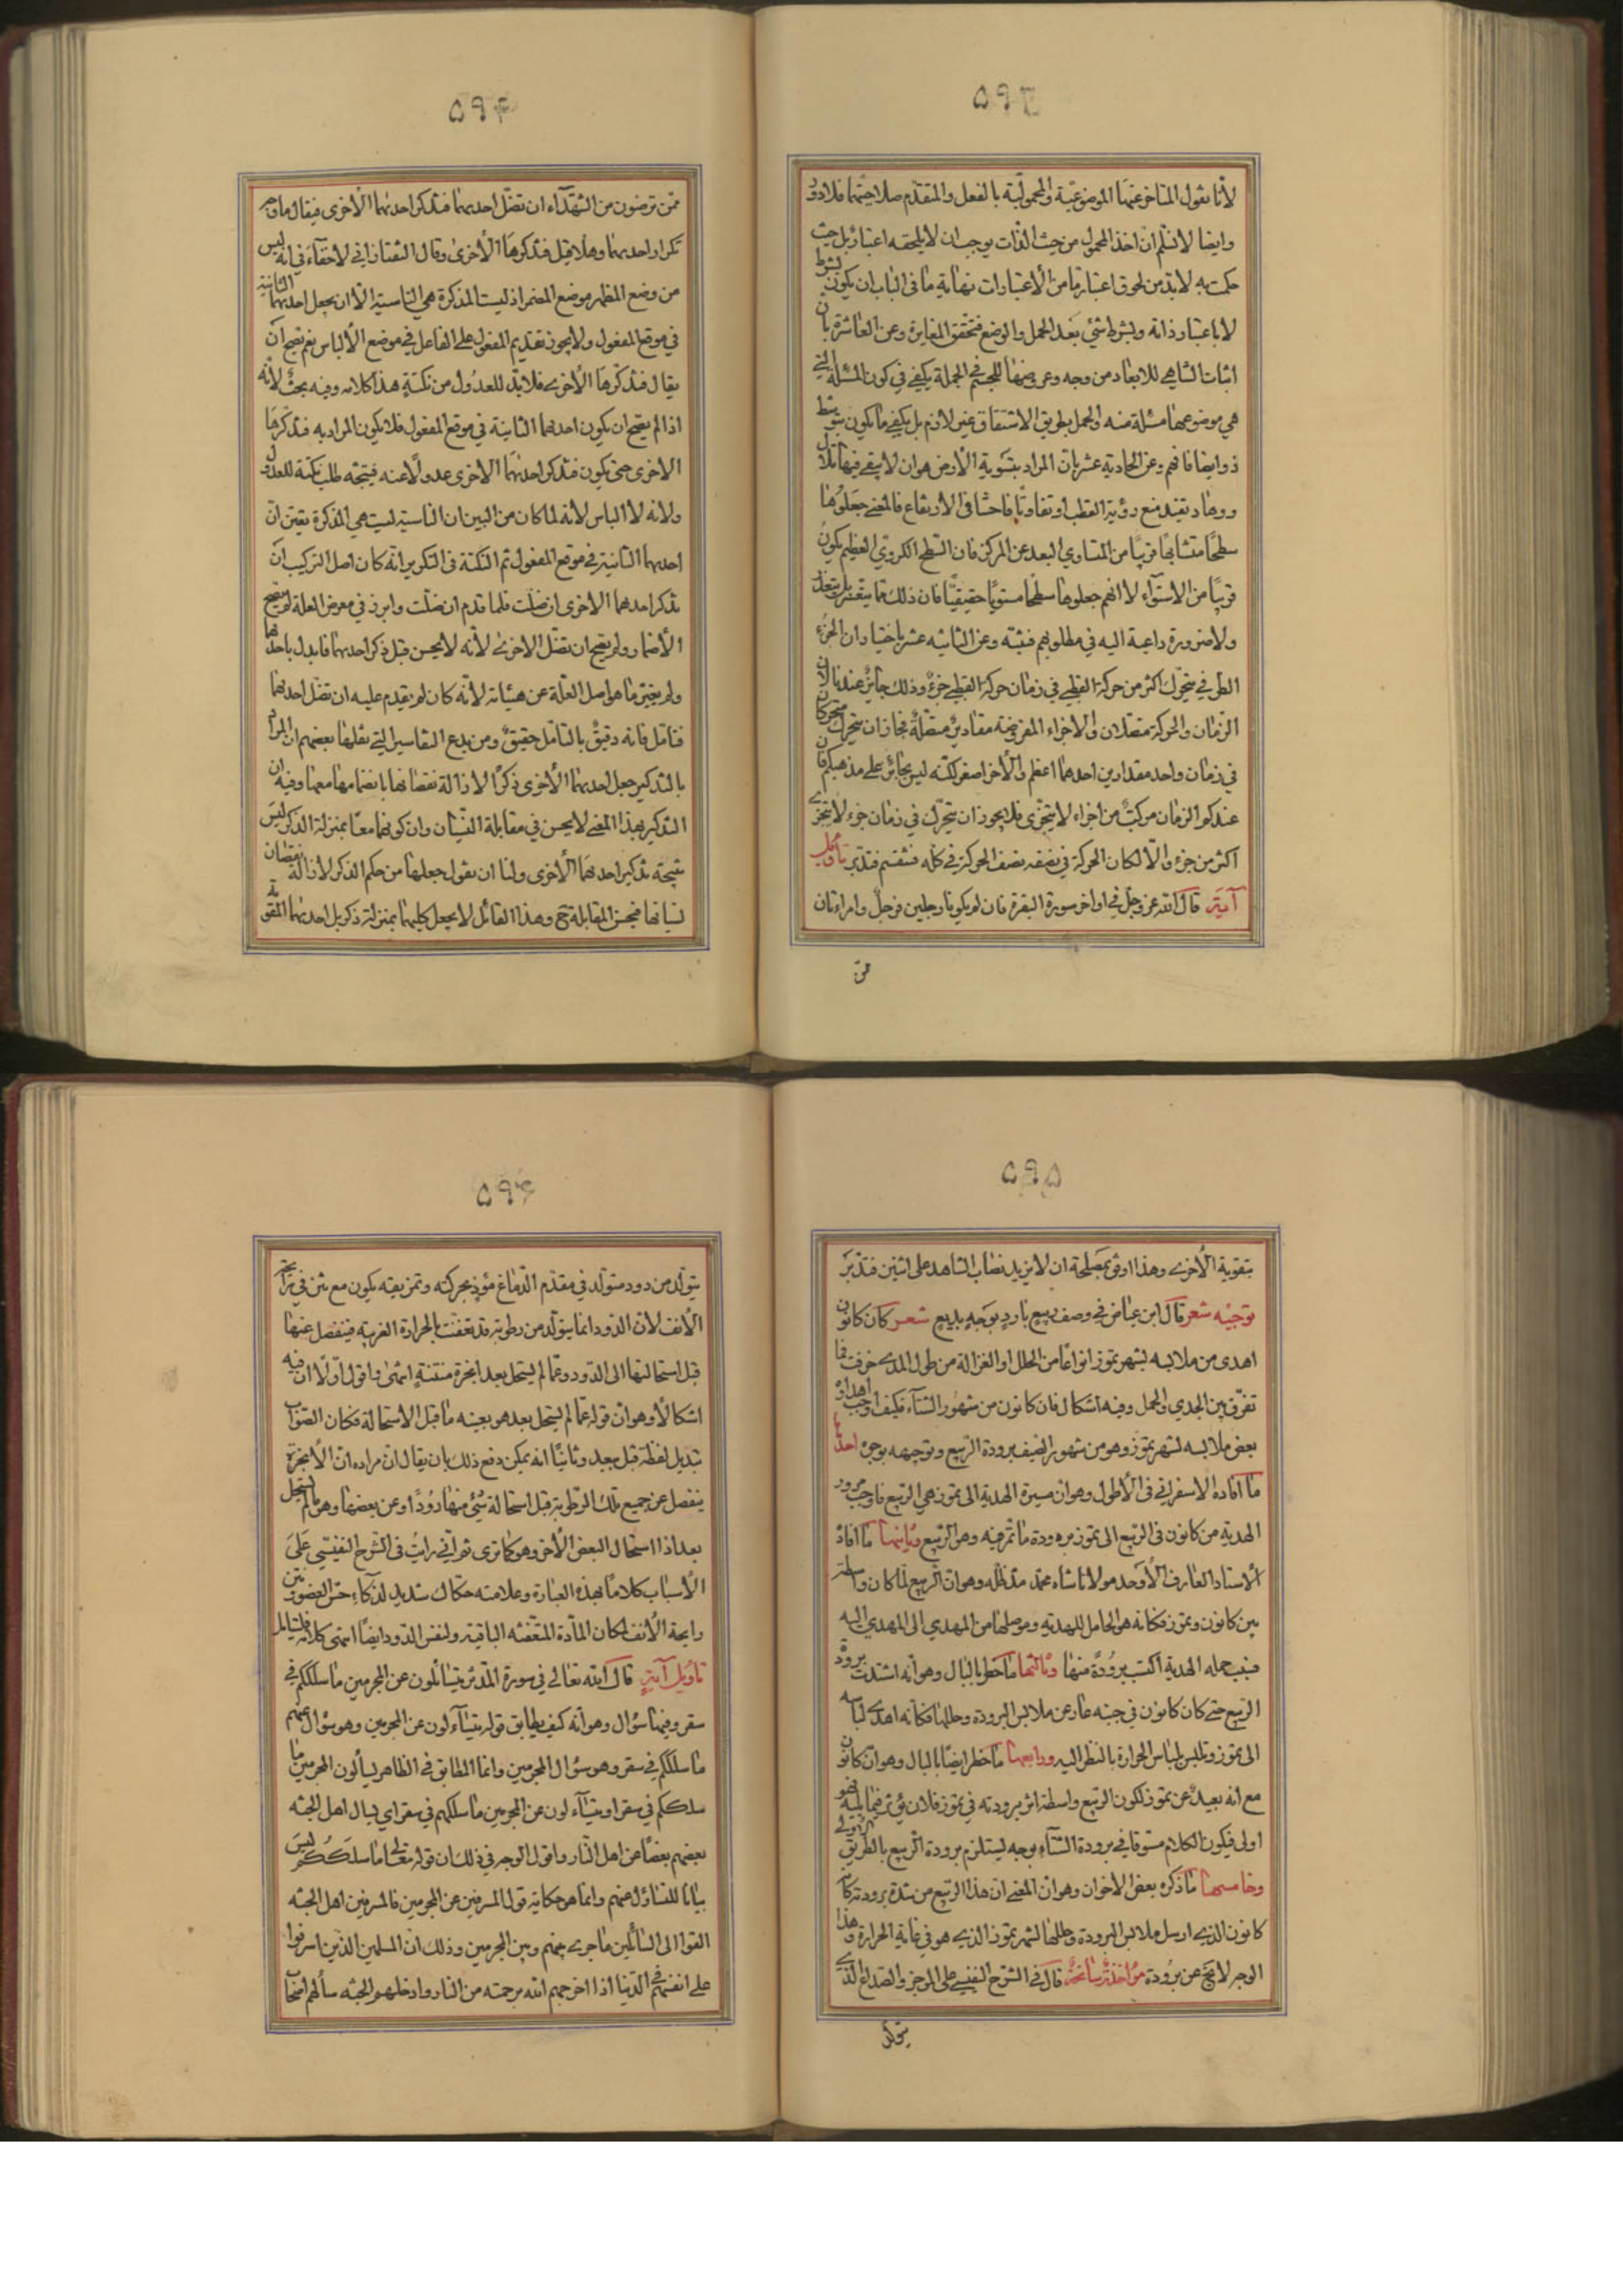 ۵۹۳
لأنا نقول المتأخر عنهما الموضوعية والمحمولية بالفعل والمتقدم صلاحيتهما فلا دور
وايضا لا نسلم ان اخذ المحمول من حيث الذات يوجب ان لا يلحقه اعتبار بل حيث
حكمت به لا بد من لحوق اعتبار ما من الاعتبارات نهاية ما فى الباب ان يكون بشرط
لا باعتبار ذاته وبشرط شئ بعد الحمل والوضع فتحقق المغايرة وعن العاشرة بان
اثبات التناهي للابعاد من وجه وعروضها للجسم في الجملة يكفي في كون المسئلة التي
هي موضوعها مسئلة منه والحمل بطريق الاشتقاق غير لازم بل يكفي ما يكون بتوسط
ذو ايضا فافهم وعن الحادية عشر بان المراد بتسوية الأرض هو ان لا يبقى فيها تلال
ووهاد تفيد منع رؤية القطب او تفاوتا فاحشا فى الارتفاع فالمعنى جعلوها
سطحا متشابها قريبا من المتساوي البعد عن المركز فان السطح الكروي العظيم يكون
قريبا من الاستواء لا انهم جعلوها سطحا مستويا حقيقيا فان ذلك مما يتعسر بل يتعذر
ولا ضرورة داعية اليه في مطلوبهم فيثبته وعن الثانيه عشر باختيار ان الجزء
الطرفي يتحرك اكثر من حركة القطبي في زمان حركة القطبي جزء وذلك جائز عندنا لان
الزمان والحركة متصلان والاجزاء المفروضة مقادير متصلة فجاز ان يتحرك متحركان
في زمان واحد مقدارين احدهما اعظم والآخر اصغر لكنه ليس بجائز على مذهبكم فان
عندكم الزمان مركب من اجزاء لا يتجزى فلا يجوز ان يتحرك في زمان جزء لا يتجزى
اكثر من جزء والا لكان الحركة في نصفه نصف الحركة في كله فتنقسم فتدبر تأويل
آية قال الله عز وجل في اواخر سورة البقرة فان لم يكونا رجلين فرجل وامراءتان
من
۵۹۴
ممن ترضون من الشهداء ان تضل احديهما فتذكر احديهما الأخرى فيقال ما وجه
تكرار احديهما وهلا قيل فتذكرها الأخرى وقال التفتازاني لا خفاء في انه ليس
من وضع المظهر موضع المضمر اذ ليست المذكرة هي الناسية الا ان يجعل احديهما الثانية
في موقع المفعول ولا يجوز تقديم المفعول على الفاعل في موضع الألباس نعم يصح ان
يقال فتذكرها الأخرى فلا بد للعدول من نكتة هذا كلامه وفيه بحث لأنه
اذا لم يصح ان يكون احدهما الثانية في موقع المفعول فلا يكون المراد به فتذكرها
الاخرى حتى يكون فتذكر احديهما الاخرى عدولا عنه فيتجه طلب نكتة للعدول
ولانه لا الباس لأنه لما كان من البين ان الناسية ليست هي المذكرة يتعين ان
احديهما الثانية في موقع المفعول ثم النكتة فى التكرير انه كان اصل التركيب ان
تذكر احدهما الاخرى ان ضلت فلما قدم ان ضلت وابرز في معرض العلة لم يصح
الأضمار ولم يصح ان تضل الاخرى لأنه لا يحسن قبل ذكر احديهما فابدل باحديهما
ولم يغير ما هو اصل العلة عن هيئاته لأنه كان لم يقدم عليه ان تضل احديهما
فتأمل فانه دقيق بالتأمل حقيق ومن بدع التفاسير التي نقلها بعضهم ان المراد
بالتذكير جعل احديهما الأخرى ذكرا لازالة نقصانها بانضمامها معها وفيه ان
التذكير بهذا المعنى لا يحسن في مقابلة النسيان وان كونهما معا بمنزلة الذكر ليس
نتيجة تذكير احديهما الأخرى ولنا ان نقول جعلها من حكم الذكر لازالة نقصان
نسيانها فيحسن المقابلة ح وهذا القائل لا يجعل كليهما بمنزلة ذكر بل احديهما المتقوية
۵۹۵
بتقوية الأخرى وهذا اوفق بمصلحة ان لا يزيد نصاب الشاهد على اثنين فتدبر
توجيه شعر قال ابن عياض في وصف ربيع بارد بوجه بديع شعر كان كانون
اهدى من ملابسه لشهر تموز انواعا من الحلل او الغزالة من طول المدى خرفت فما
تفرق بين الجدي والحمل وفيه اشكال فان كانون من شهور الشتاء فكيف اوجب اهداؤ
بعض ملابسه لشهر تموز وهو من شهور الصيف برودة الربيع وتوجيهه بوجوه احدها
ما افاده الاسفرائني فى الأطول وهو ان مسيرة الهدية الى تموز هي الربيع فاوجب مرور
الهدية من كانون فى الربع الى تموز برودة ما تمر فيه وهو الربيع وثانيها ما افاد
الأستاد العارف الأوحد مولانا شاه محمد مد ظله وهو ان الربيع لما كان واسطة
بين كانون وتموز فكانه هو الحامل للهدية وموصلها من المهدي الى المهدي اليه
فبسبب حمله الهدية اكتسب برودة منها وثالثها ما خطر بالبال وهو انه اشتدت برودة
الربيع حتى كان كانون في جنبه عار عن ملابس البرودة وحللها فكانه اهدى لباسه
الى تموز وتلبس لباس الحرارة بالنظر اليه ورابعها ما خطر ايضا بالبال وهو ان كانون
مع انه بعيد عن تموز لكون الربيع واسطة اثر برودته في تموز فلان يؤثر فيما يليه فهو
اولى فيكون الكلام مسوقا في برودة الشتاء بوجه يستلزم برودة الربيع بالطريق الأولى
وخامسها ما ذكره بعض الاخوان وهو ان المعنى ان هذا الربيع من شدة برودته كان
كانون الذي ارسل ملابس البرودة وحللها لشهر تموز الذي هو في غاية الحرارة وهذا
الوجه لا يخ عن برودة مؤاخذة سانحة قال فى الشرح النفيسي على الموجز والصداع الذي
يتولد
۵۹۶
يتولد من دود متولد في مقدم الدماغ مؤذ بحركته وتمزيقه يكون مع نتن في رائحة
الأنف لان الدود انما يتولد من رطوبة قد تعفنت بالحرارة الغريبة فينفصل عنها
قبل استحالتها الى الدود وعما لم يستحل بعد ابخرة منتنة انتهى واقول اولا ان فيه
اشكالا وهو ان قوله عما لم يستحل بعد هو بعينه ما قبل الأستحالة فكان الصواب
تبديل لفظة قبل ببعد وثانيا انه يمكن دفع ذلك بان يقال ان مراده ان الأبخرة
ينفصل عن جميع تلك الرطوبة قبل استحالة شئ منها دودا وعن بعضها وهو ما لم يستحل
بعد اذا استحال البعض الأخر وهو كما ترى ثم اني رايت فى الشرح النفيسي على
الأسباب كلاما بهذه العبارة وعلامته حكاك شديد لذكاء حس العضو ونتن
رايحة الأنف لمكان المادة المتعفنه الباقية ولنفس الدود ايضا انتهى كلامه فليتأمل
تأويل آية قال الله تعالى في سورة المدثر يتسائلون عن المجرمين ما سلككم في
سقر وفيها سؤال وهو أنه كيف يطابق قوله يتساءلون عن المجرمين وهو سؤال عنهم
ما سلككم في سقر وهو سؤال المجرمين وانما المطابق فى الظاهر يسألون المجرمين ما
سلككم في سقر او يتساءلون عن المجرمين ما سلكهم في سقر اي يسال اهل الجنه
بعضهم بعضا عن اهل النار واقول الوجه في ذلك ان قوله تعالى ما سلككم ليس
بيانا للتساؤل عنهم وانما هو حكاية قول المسرفين عن المجرمين فالمسرفين اهل الجنه
القوا الى السائلين ما جرى بينهم وبين المجرمين وذلك ان المسلمين الذين اسرفوا
على انفسهم في الدنيا اذا اخرجهم الله برحمته من النار وادخلهم الجنه سألهم اصحا